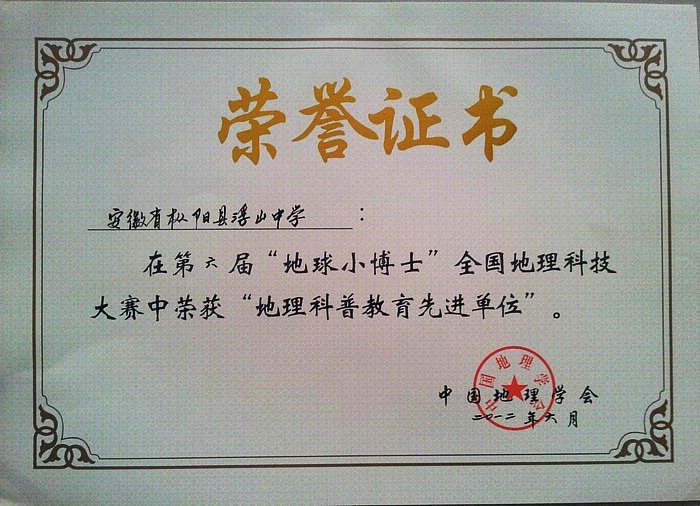 荣誉证书
安徽省枞阳县浮山中学：
在第六届“地球小博士”全国地理科技
大赛中荣获“地理科普教育先进单位”。
中国地理学会
中国地理学会
二〇一二年六月